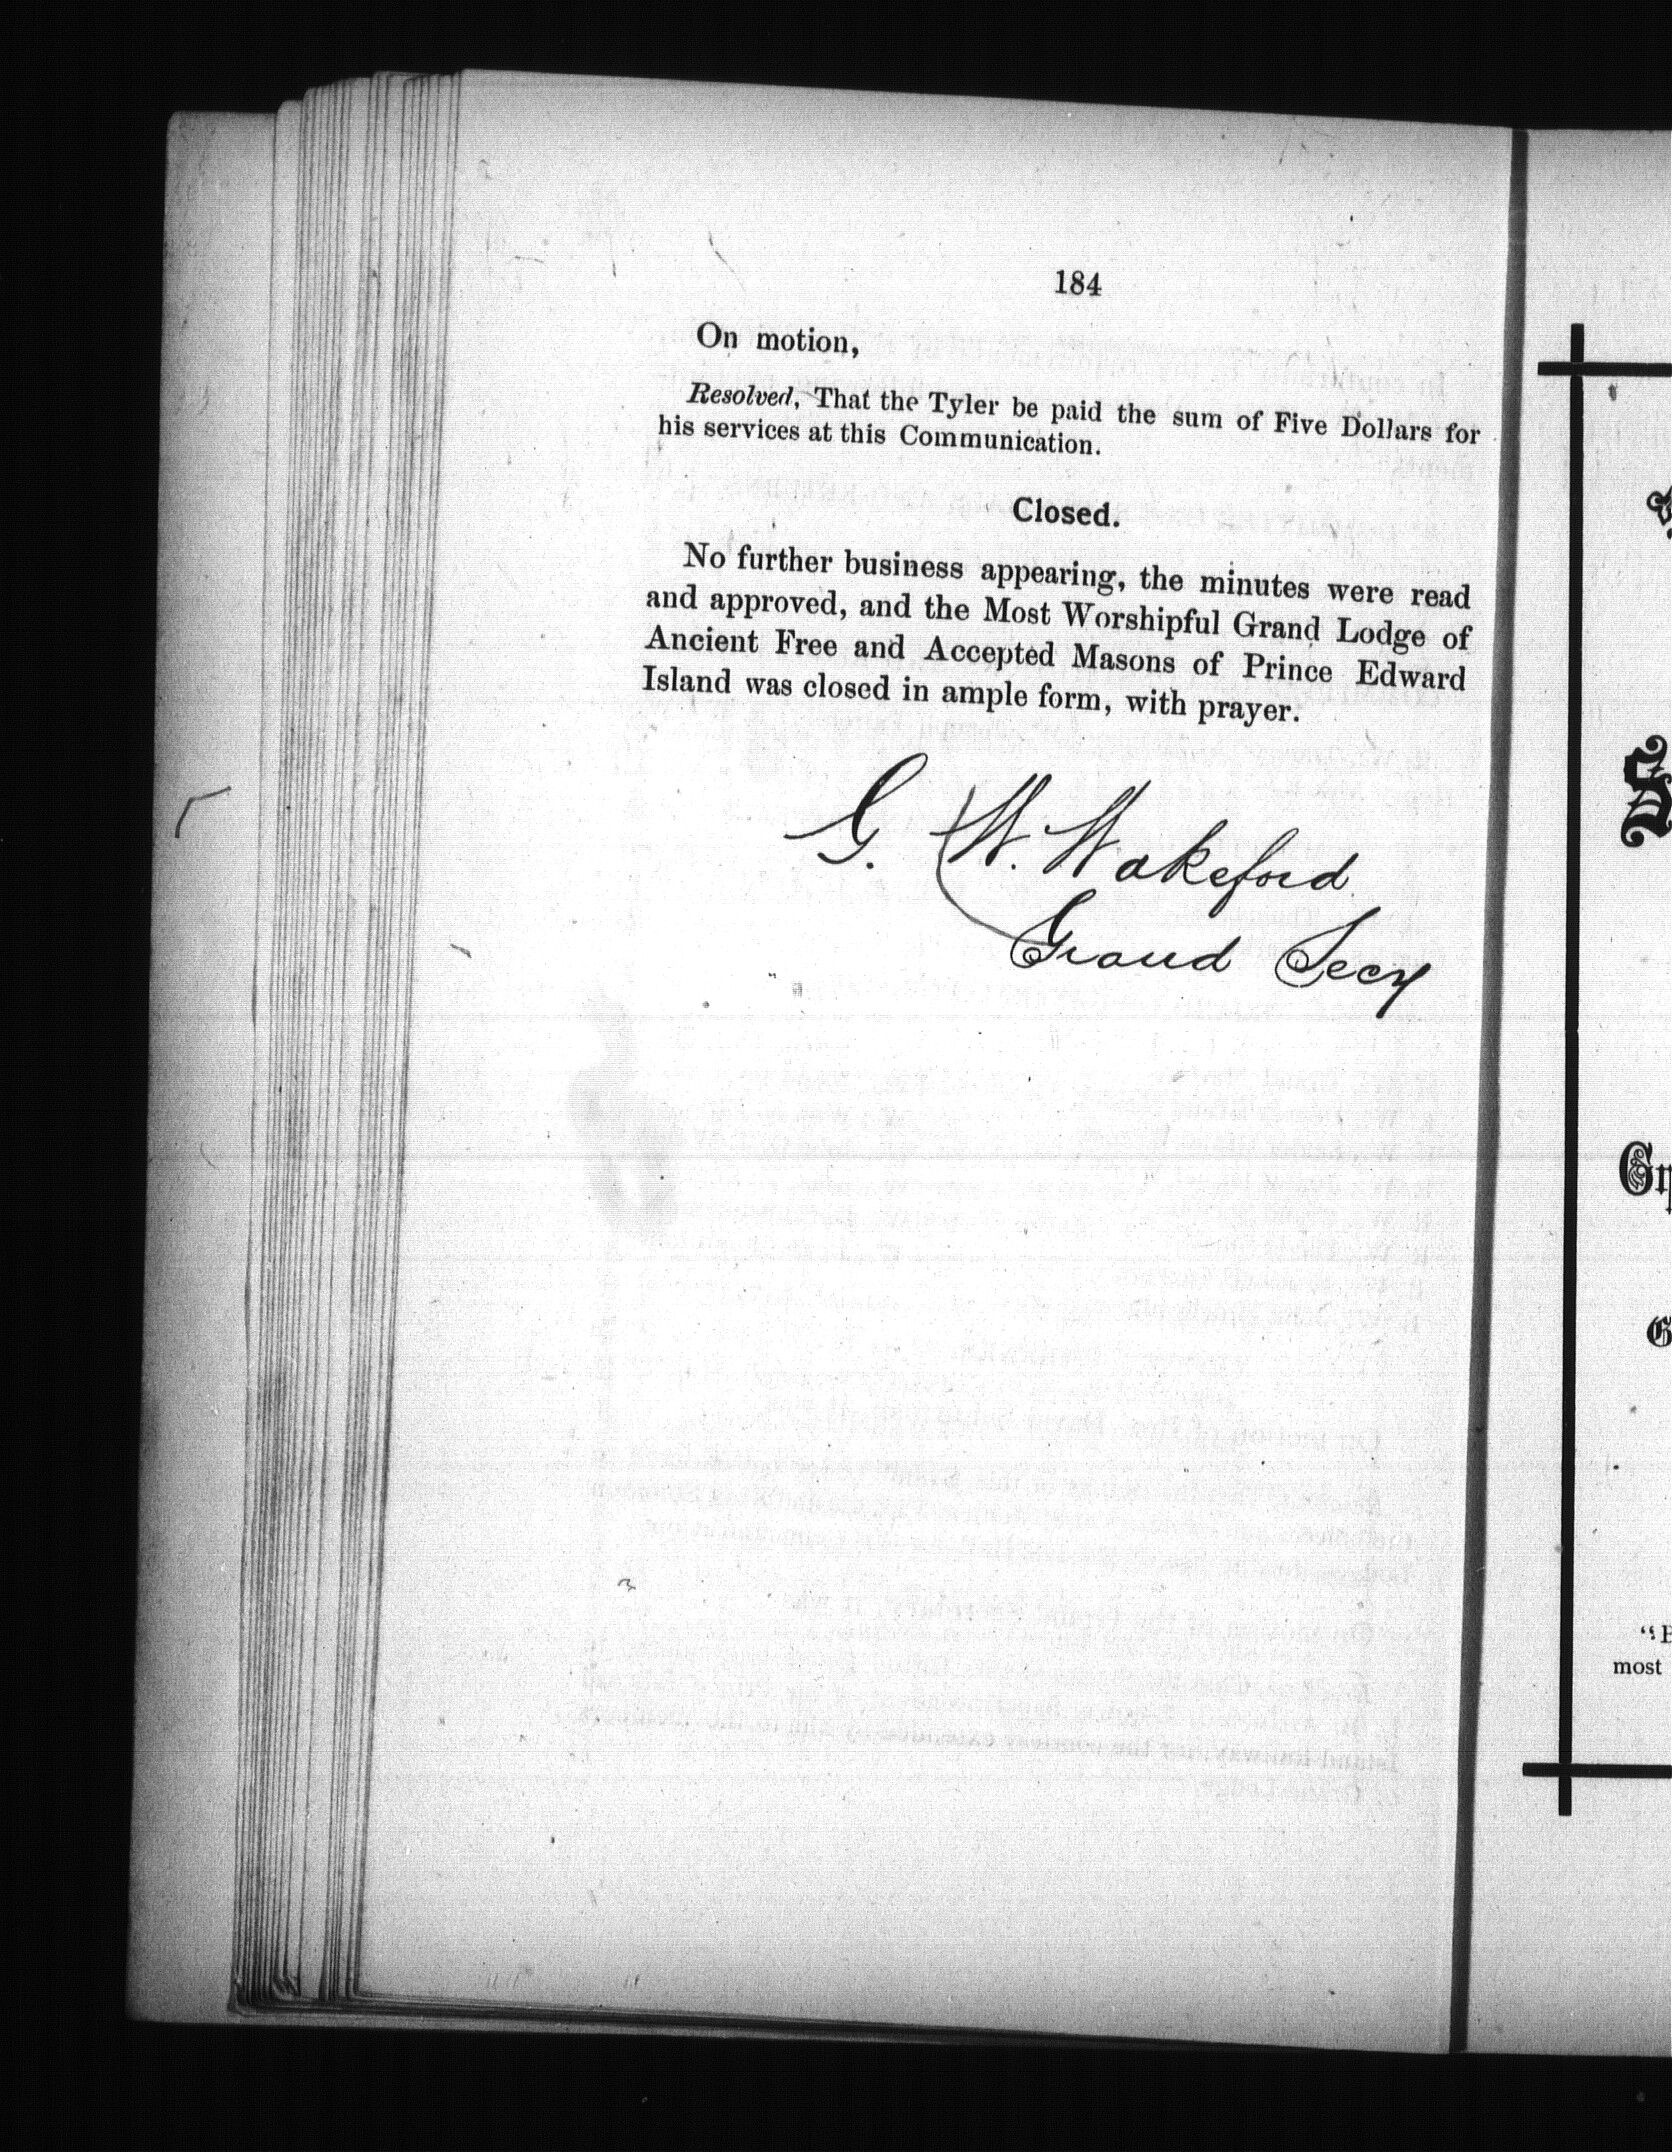 184
On motion,
Resolved, That the Tyler be paid the sum of Five Dollars for
his services at this Communication.
Closed.
No further business appearing, the minutes were read
and approved, and the Most Worshipful Grand Lodge of
Ancient Free and Accepted Masons of Prince Edward
Island was closed in ample form, with prayer.
G. W. Wakeford
Grand Secy
most